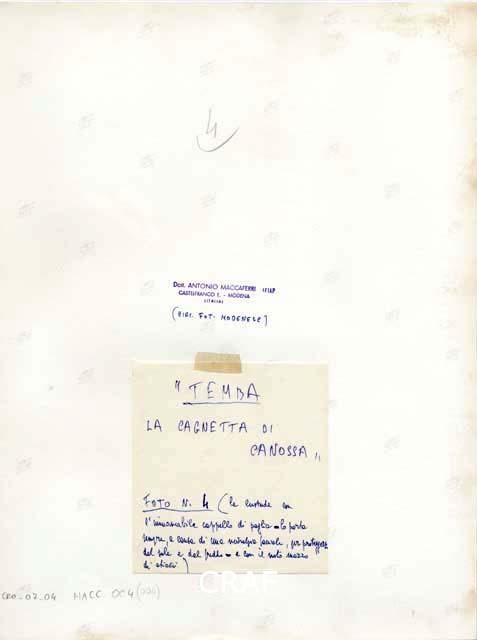 4
Dott. ANTONIO MACCAFERRI EFIAP
CASTELFRANCO E. - MODENA
(ITALIA)
(CIRC. FOT. MODENESE)
"TEMBA
LA CAGNETTA DI
CANOSSA"
FOTO N. 4 (la custode con
l'immancabile cappello di paglia - lo porta
sempre, a causa di una nevralgia facciale, per proteggersi
dal sole e dal freddo - e con il noto mazzo
di chiavi)
CRO_02_04 MACC 004 (004)
CRAF